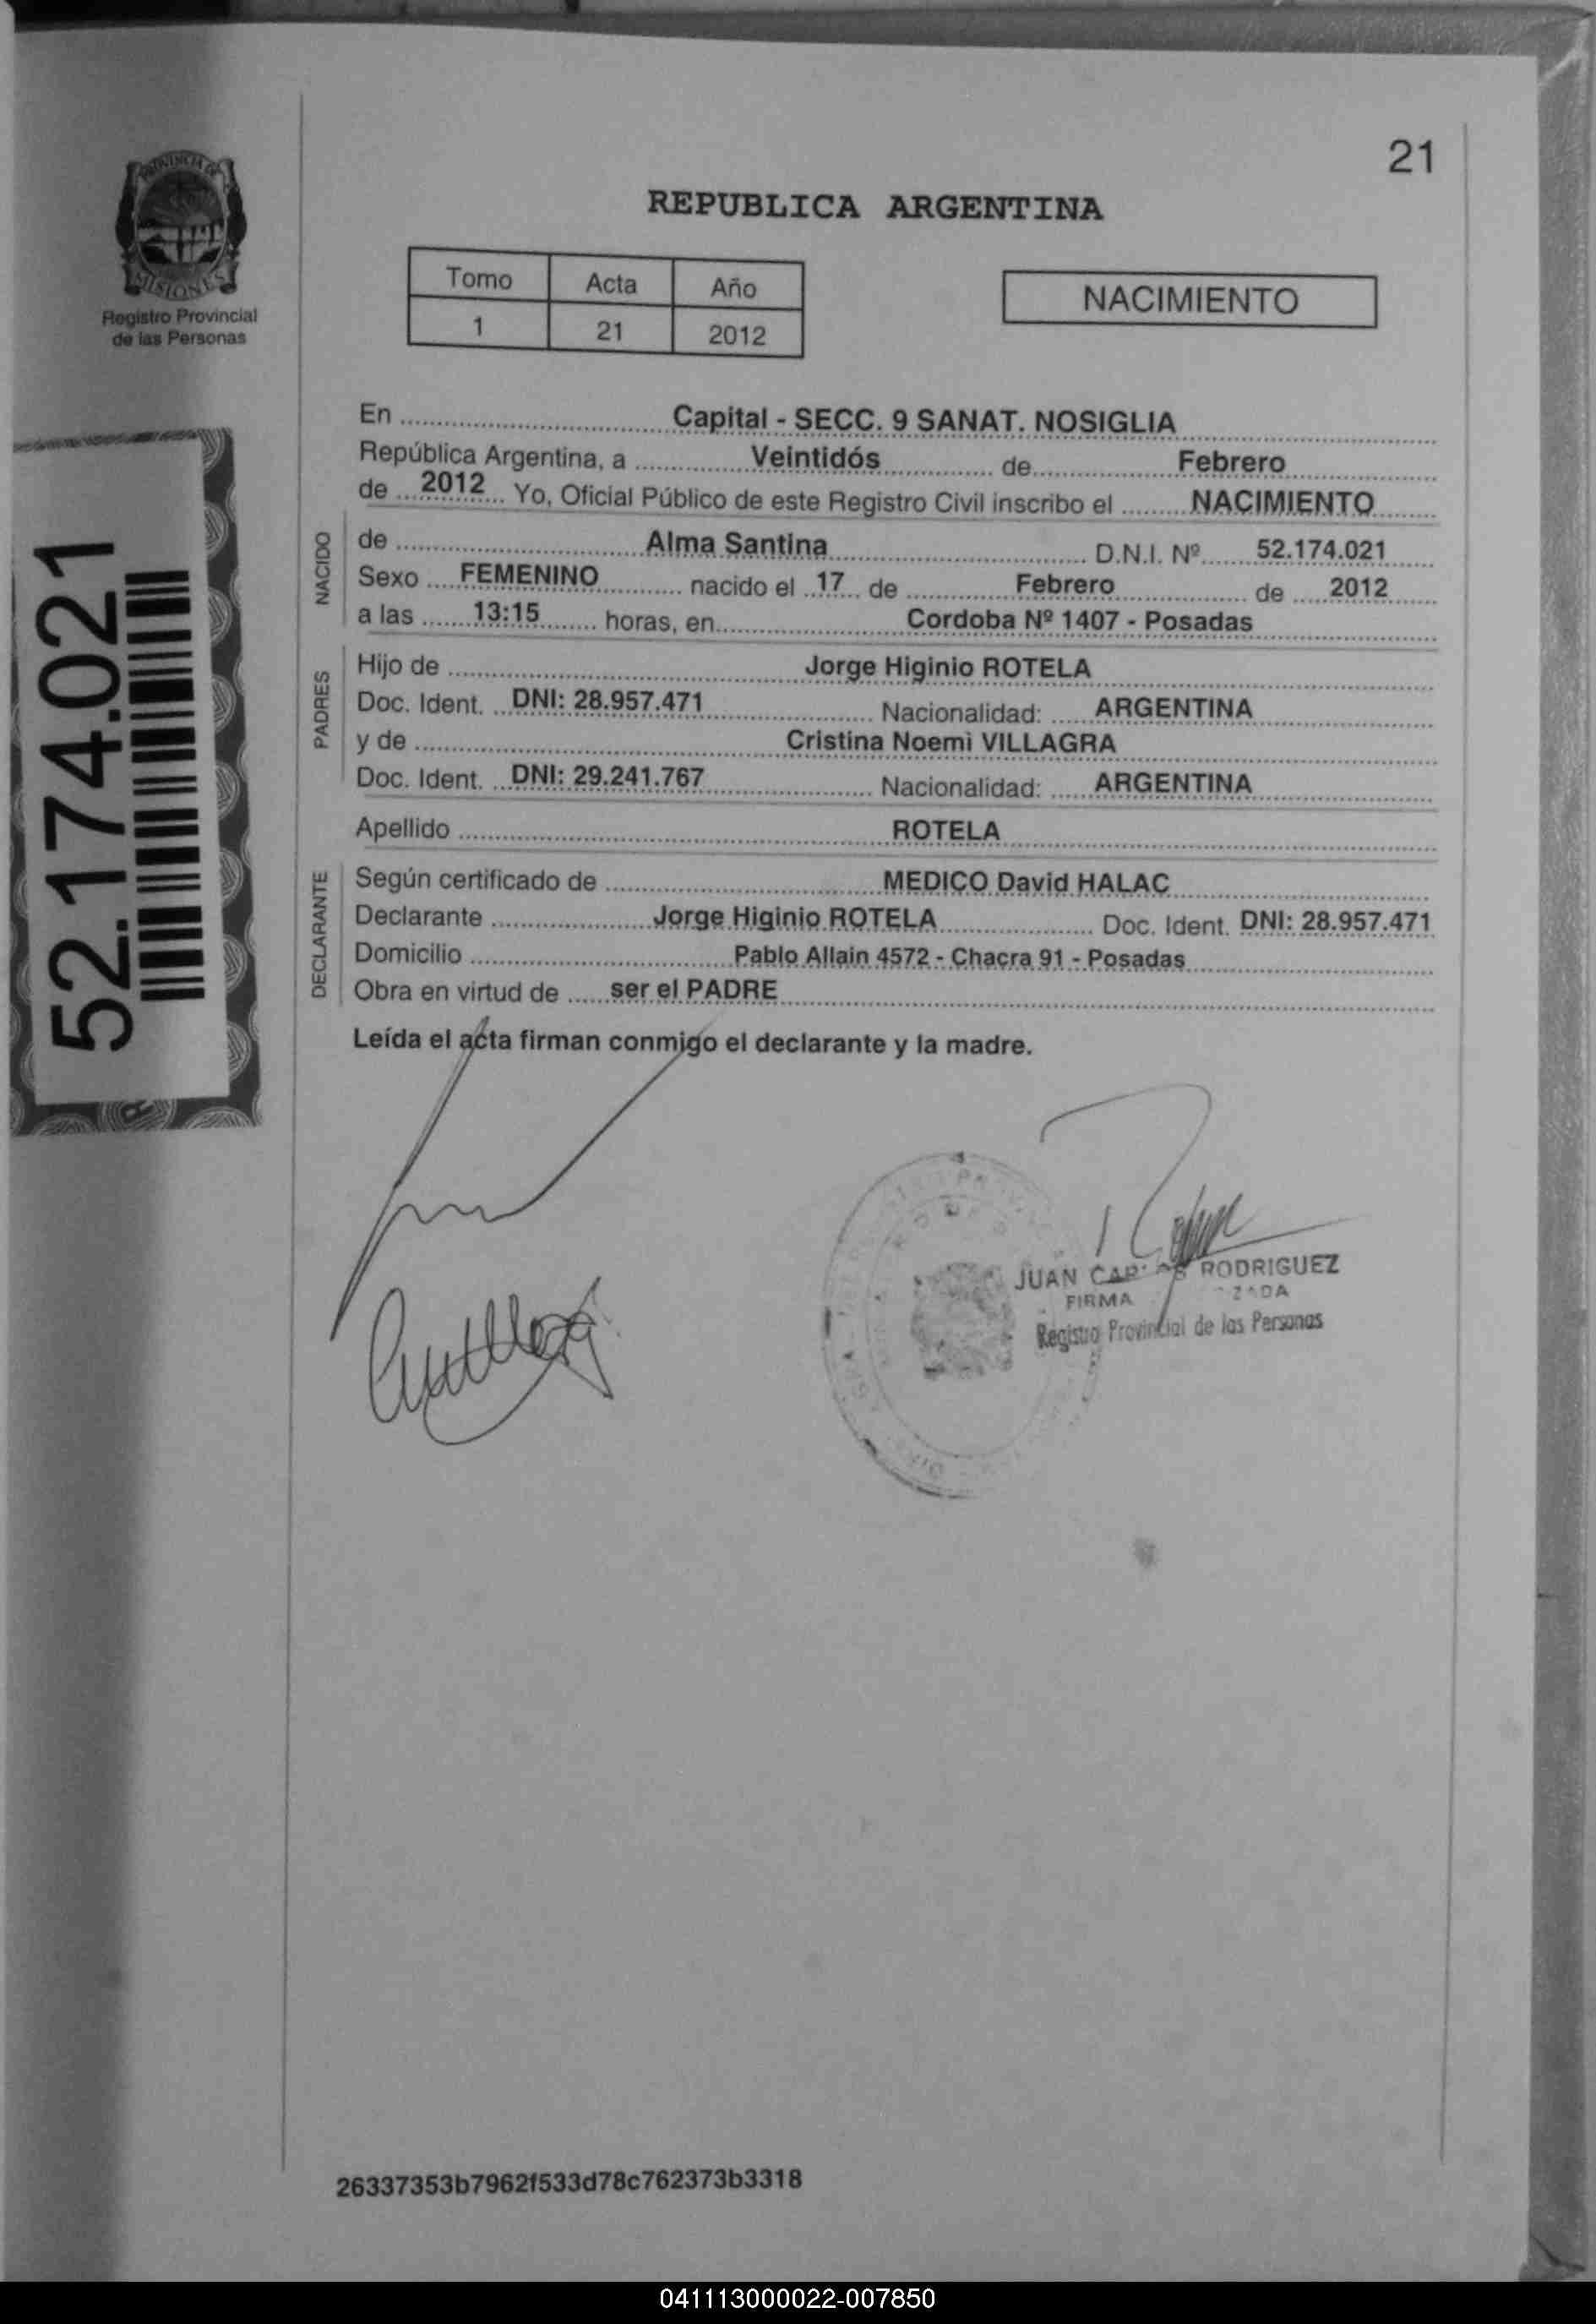 21
PROVINCIA DE
MISIONES
Registro Provincial
de las Personas
REPUBLICA ARGENTINA
Tomo Acta Año
1 21 2012
NACIMIENTO
52.174.021
En Capital - SECC. 9 SANAT. NOSIGLIA
República Argentina, a Veintidós de Febrero
de 2012 Yo, Oficial Público de este Registro Civil inscribo el NACIMIENTO
NACIDO
de Alma Santina D.N.I. Nº 52.174.021
Sexo FEMENINO nacido el 17 de Febrero de 2012
a las 13:15 horas, en Cordoba Nº 1407 - Posadas
PADRES
Hijo de Jorge Higinio ROTELA
Doc. Ident. DNI: 28.957.471 Nacionalidad: ARGENTINA
y de Cristina Noemì VILLAGRA
Doc. Ident. DNI: 29.241.767 Nacionalidad: ARGENTINA
Apellido ROTELA
DECLARANTE
Según certificado de MEDICO David HALAC
Declarante Jorge Higinio ROTELA Doc. Ident. DNI: 28.957.471
Domicilio Pablo Allain 4572 - Chacra 91 - Posadas
Obra en virtud de ser el PADRE
Leída el acta firman conmigo el declarante y la madre.
JUAN CARLOS RODRIGUEZ
FIRMA
Registro Provincial de las Personas
26337353b7962f533d78c762373b3318
041113000022-007850